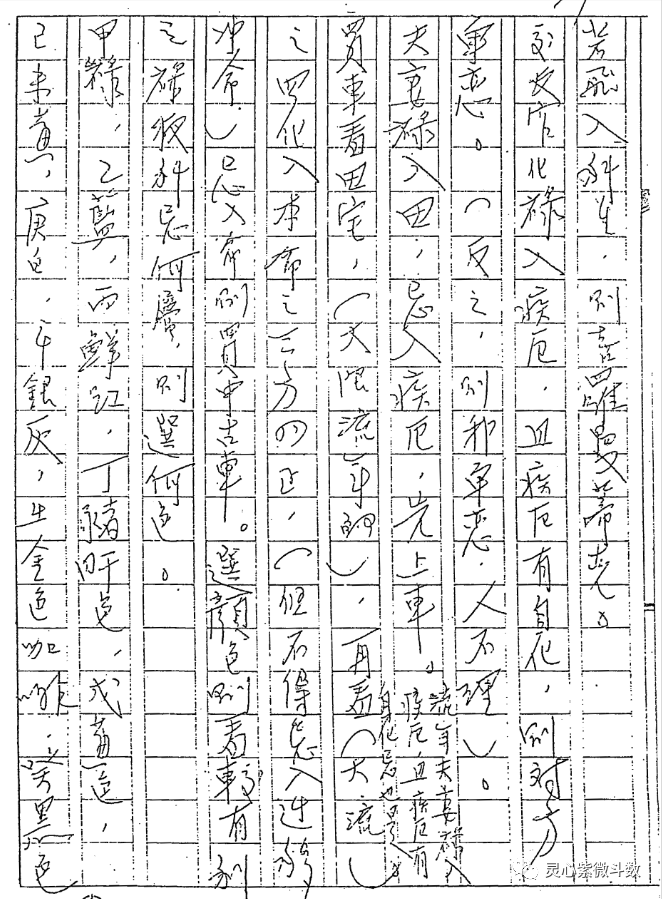 若飛入科生，則喜羅曼蒂克。
交友宮化祿入疾厄，且疾厄有自化，則對方
單戀。（反之，則祁單戀，人不理）。
夫妻祿入田，忌入疾厄，先上車。流年夫妻祿入疾厄，且疾厄有自化忌也是。
買車看田宅，（大限流年的），再看（大流）
之四化入本命之三方四正，（但不得忌入遷移
冲命）忌入命則買中古車。選顏色則看較有利
之祿權科忌何曆，則選何色。
甲綠，乙藍，丙鮮紅，丁豬肝色，戊黃色，
己未黃，庚白，辛銀灰，壬金色咖啡，癸黑色
灵心紫微斗数